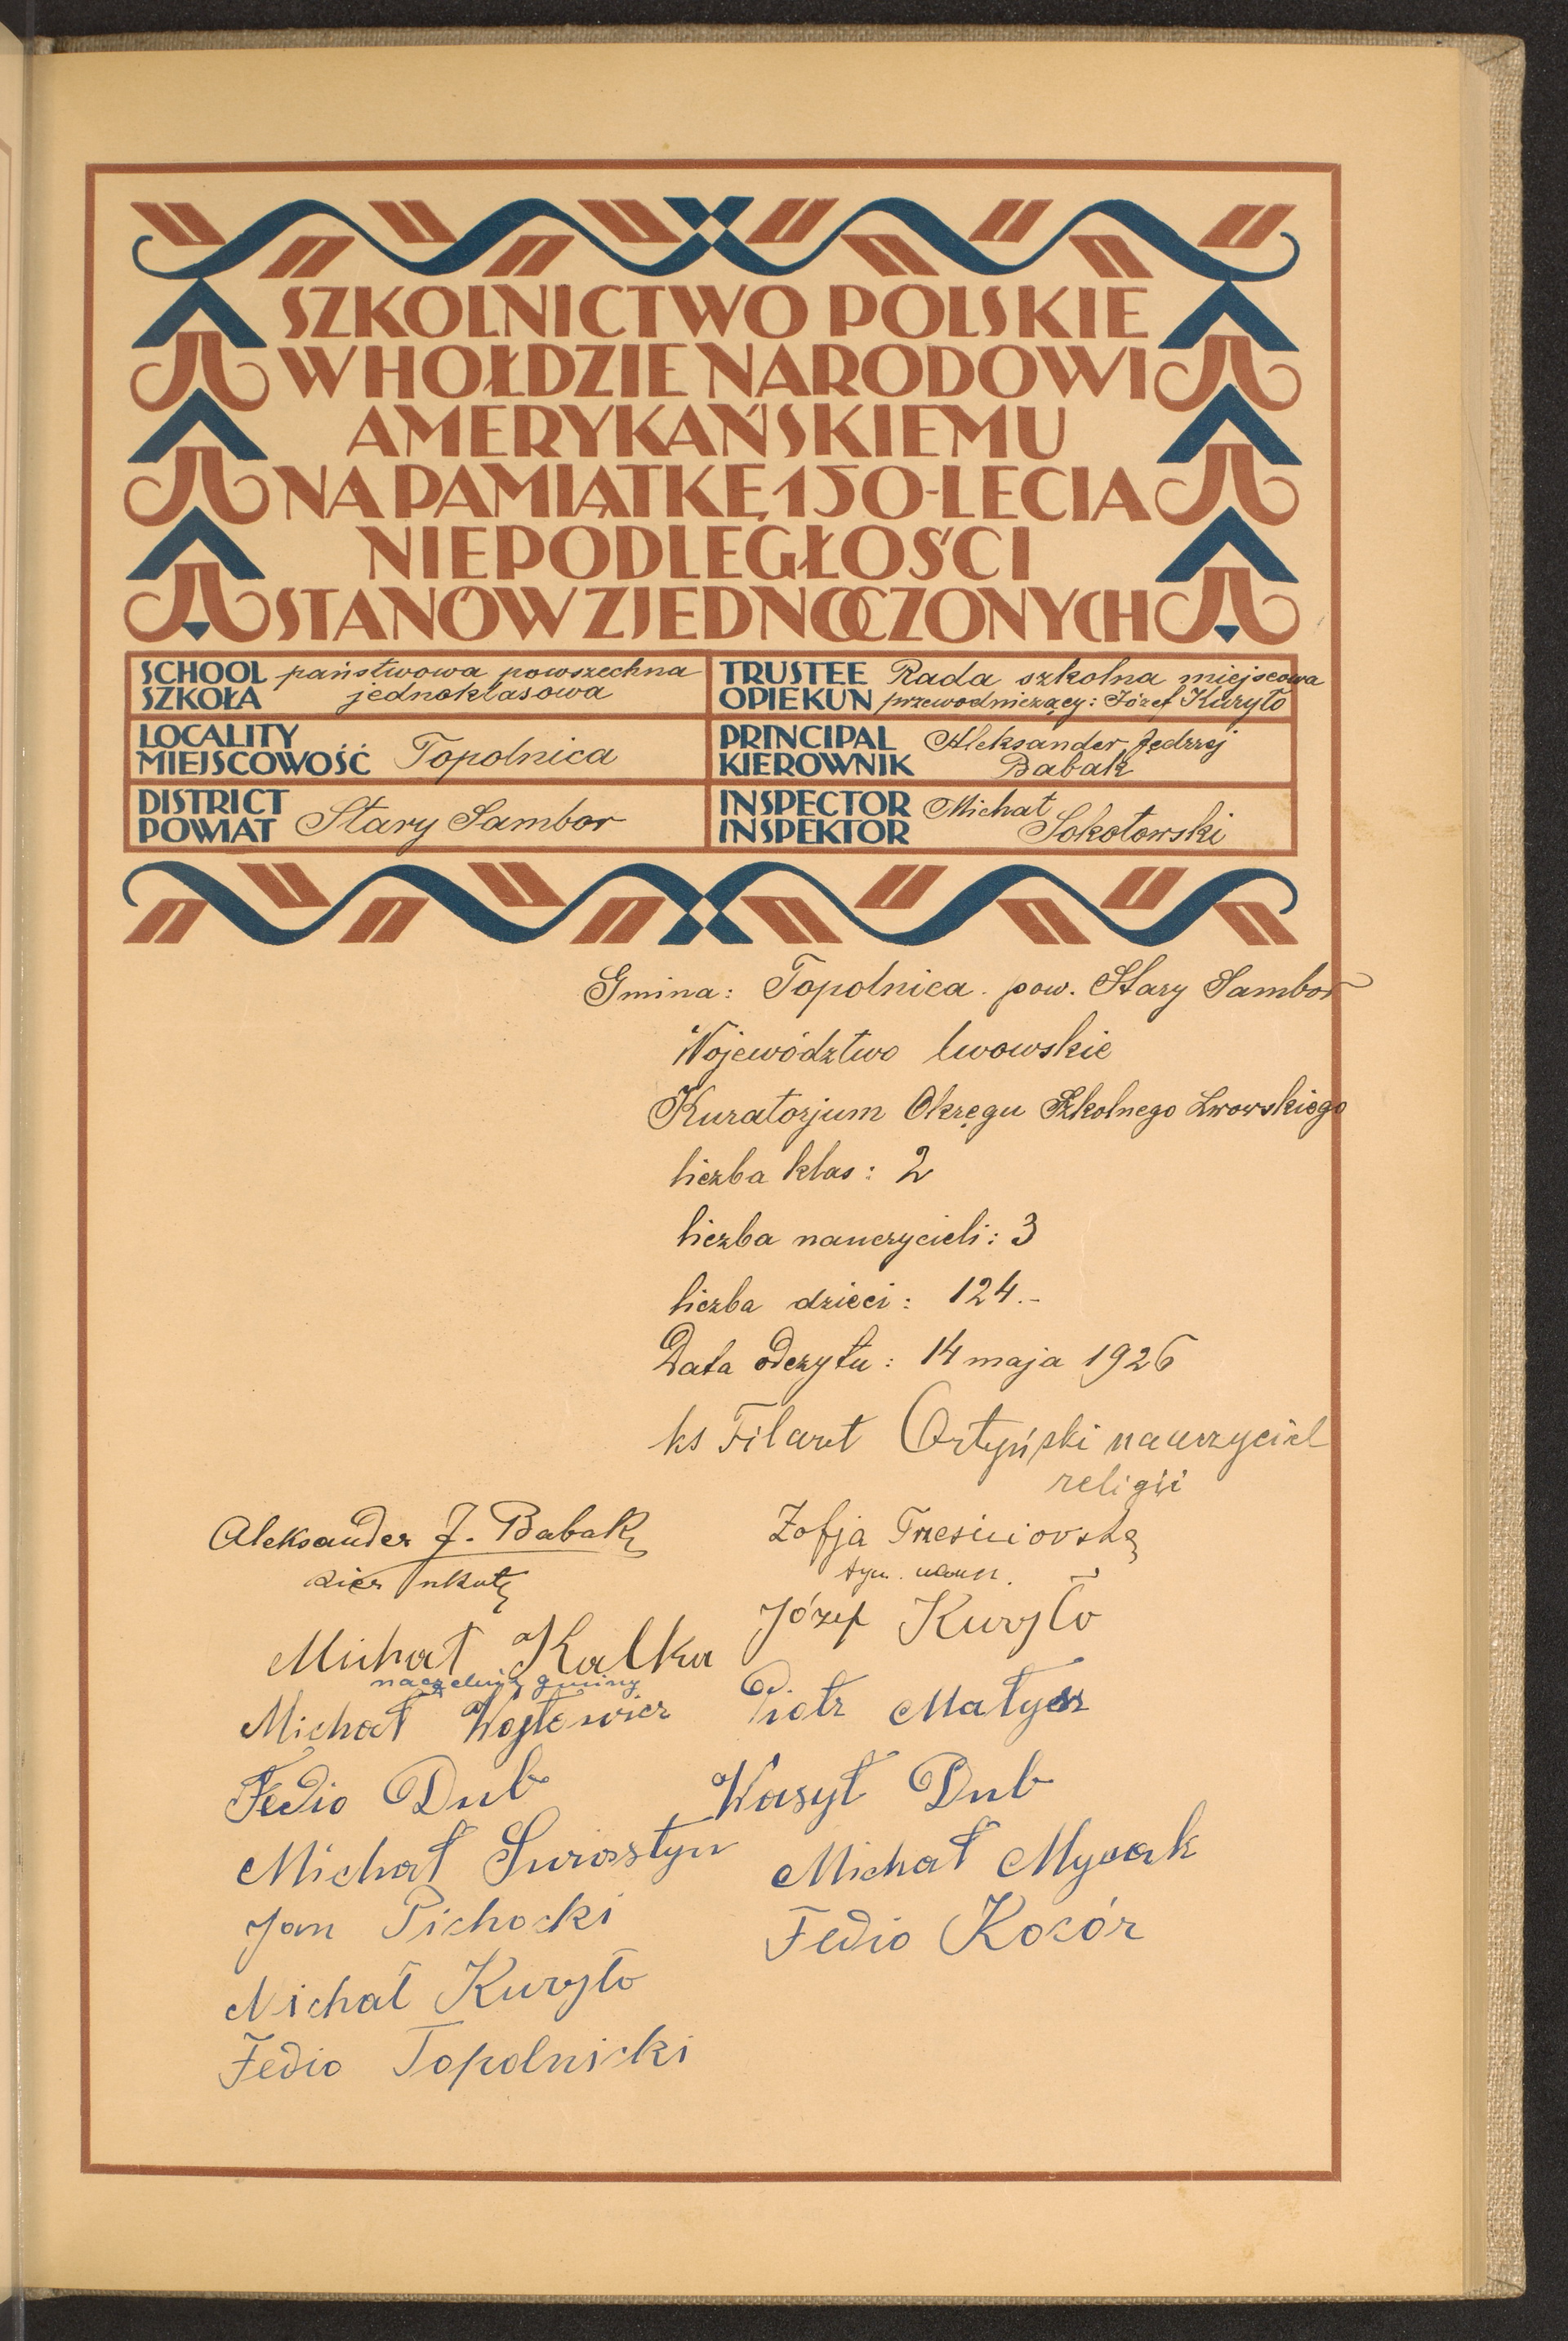 SZKOLNICTWO POLSKIE
W HOŁDZIE NARODOWI
AMERYKAŃSKIEMU
NA PAMIĄTKĘ 150-LECIA
NIEPODLEGŁOŚCI
STANÓW ZJEDNOCZONYCH
SCHOOL SZKOŁA państwowa powszechna
jednoklasowa
TRUSTEE OPIEKUN Rada szkolna miejscowa
przewodniczący: Józef Kuryło
LOCALITY
MIEJSCOWOŚĆ Topolnica
PRINCIPAL KIEROWNIK Aleksander Jędrzej
Babak
DISTRICT
POWIAT Stary Sambor
INSPECTOR INSPEKTOR Michał
Sokołowski
Gmina: Topolnica. pow. Stary Sambor
Województwo lwowskie
Kuratorjum Okręgu Szkolnego Lwowskiego
liczba klas: 2
liczba nauczycieli: 3
liczba dzieci: 124.-
Data odczytu: 14 maja 1926
ks Filaret Ortyński nauczyciel
religji
Aleksander J. Babak
kier
Zofja
Michał Kalka
naczelnik gminy
Józef Kuryło
Michał Wojtowicz
Piotr Matysz
Fedio Dub
Wasyl Dub
Michał
Michał Mycak
Jan Pichocki
Fedio Kocór
Michał Kuryło
Fedio Topolnicki